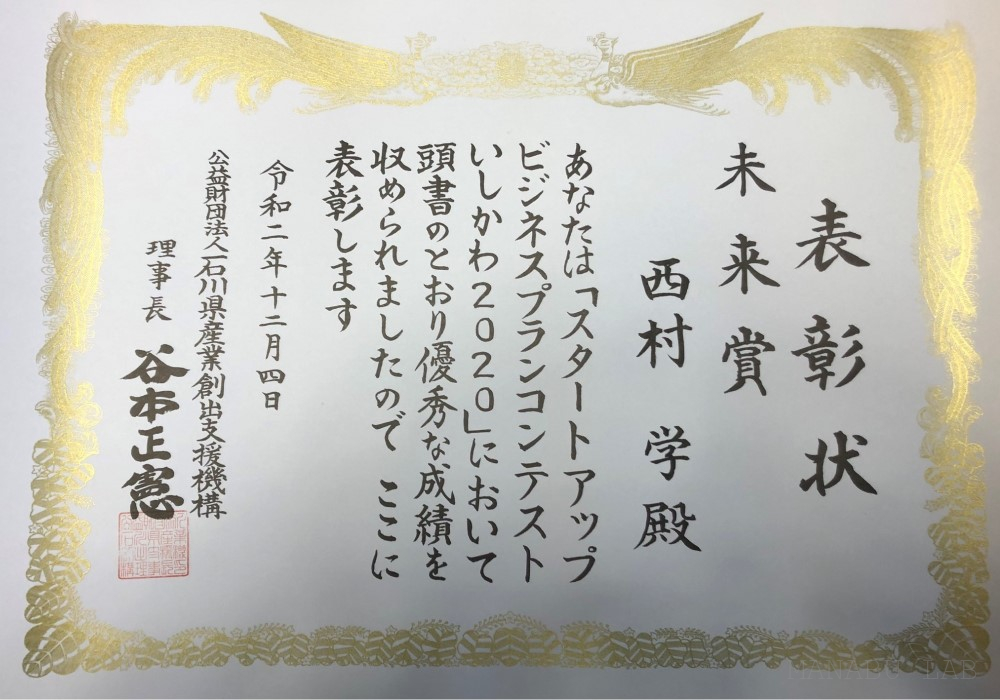 表彰状
未来賞
西村 学 殿
あなたは「スタートアップ
ビジネスプランコンテスト
いしかわ2020」において
頭書のとおり優秀な成績を
収められましたので ここに
表彰します
令和二年十二月四日
公益財団法人石川県産業創出支援機構
理事長 谷本正憲
MANABU LAB